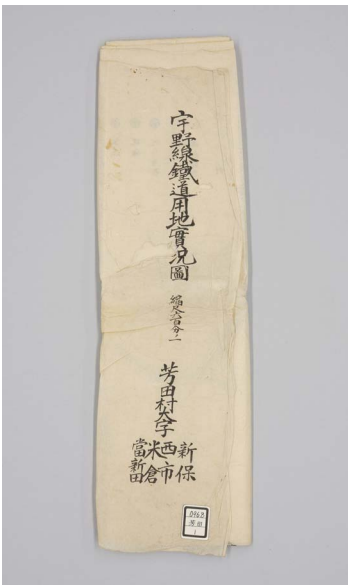 宇野線鐵道用地實況圖
縮尺六百分ノ一
芳田村大字
新保
西市
米倉
當新田